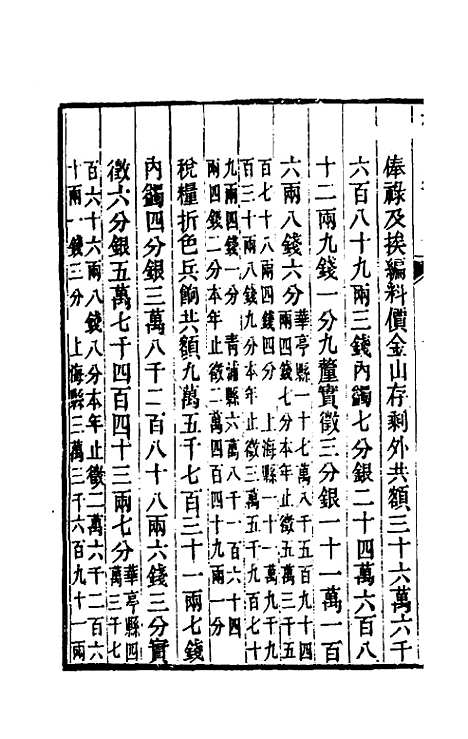 俸祿及挨編料價金山存剩外共額三十六萬六千
六百八十九兩三錢內蠲七分銀二十四萬六百八
十二兩九錢一分九釐實徵三分銀一十一萬一百
六兩八錢六分華亭縣一十七萬八千五百九十四
兩四錢七分本年止徵五萬三千五
百七十八兩四錢四分 上海縣一十一萬九千九
百三十兩八錢九分本年止徵三萬五千九百七十
九兩四錢一分 青浦縣六萬八千一百六十四
兩四錢二分本年止徵二萬四百四十九兩一分
稅糧折色兵餉共額九萬五千七百三十一兩七錢
內蠲四分銀三萬八千二百八十八兩六錢三分實
徵六分銀五萬七千四百四十三兩七分華亭縣四
萬三千七
百六十六兩八錢八分本年止徵二萬六千二百六
十兩一錢三分 上海縣三萬三千六百九十一兩